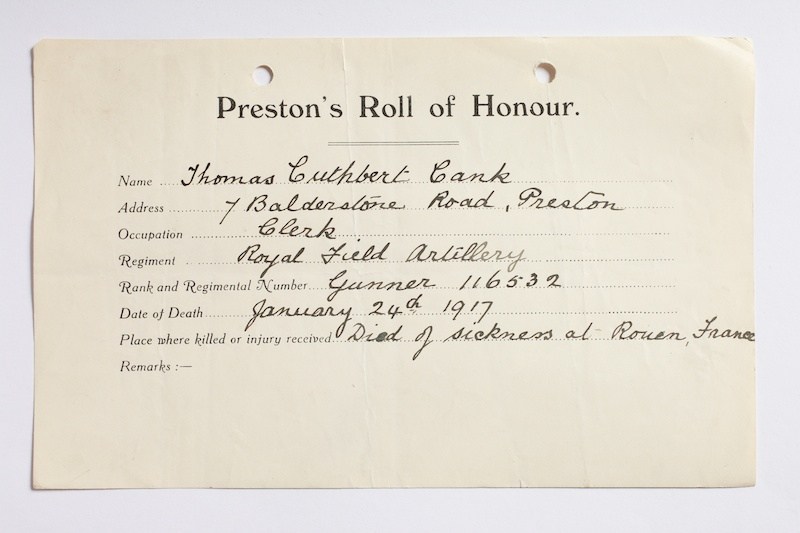 Preston's Roll of Honour.
Name Thomas Cuthbert Cank
Address 7 Balderstone Road, Preston
Occupation Clerk
Regiment Royal Field Artillery
Rank and Regimental Number Gunner 116532
Date of Death January 24th 1917
Place where killed or injury received Died of sickness at Rouen, France
Remarks :—